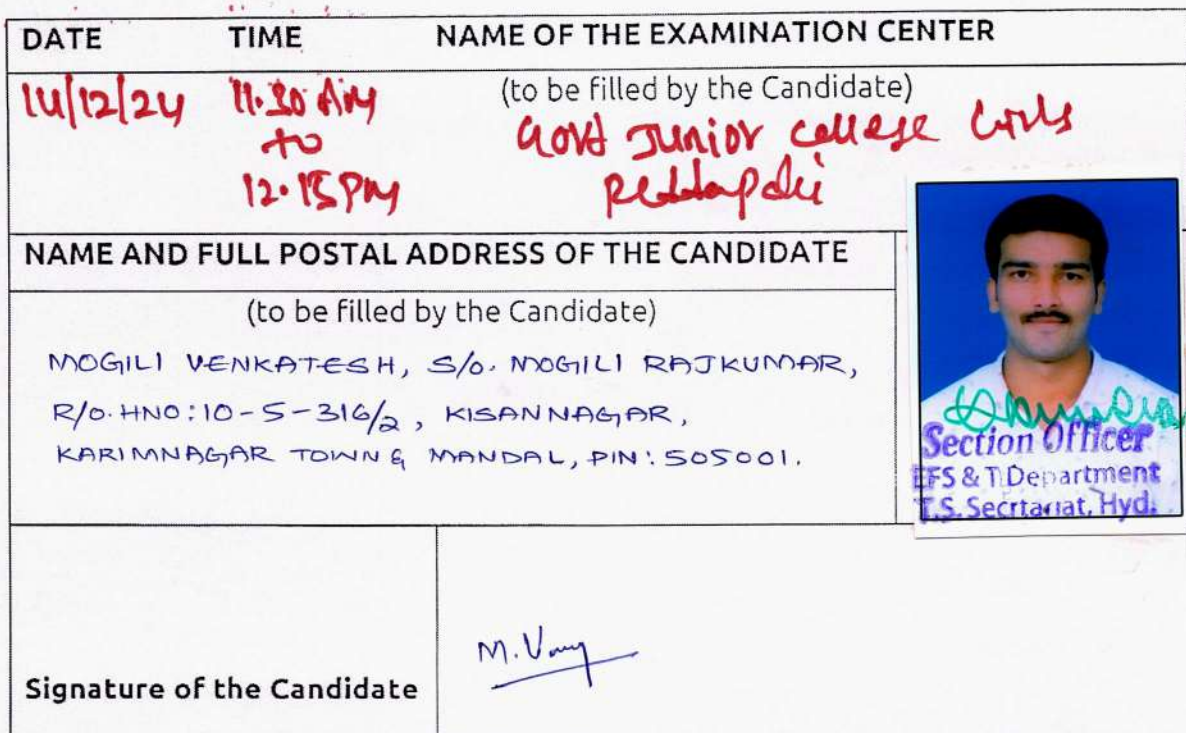 DATE TIME NAME OF THE EXAMINATION CENTER
(to be filled by the Candidate)
14/12/24 11.30 AM Govt Junior College Girls
to
12.15 PM
NAME AND FULL POSTAL ADDRESS OF THE CANDIDATE
(to be filled by the Candidate)
MOGILI VENKATESH, S/O. MOGILI RAJKUMAR,
R/O. HNO: 10-5-316/2, KISANNAGAR,
KARIMNAGAR TOWN & MANDAL, PIN: 505001.
Section Officer
EFS & T Department
T.S. Secrtariat, Hyd.
Signature of the Candidate
M.